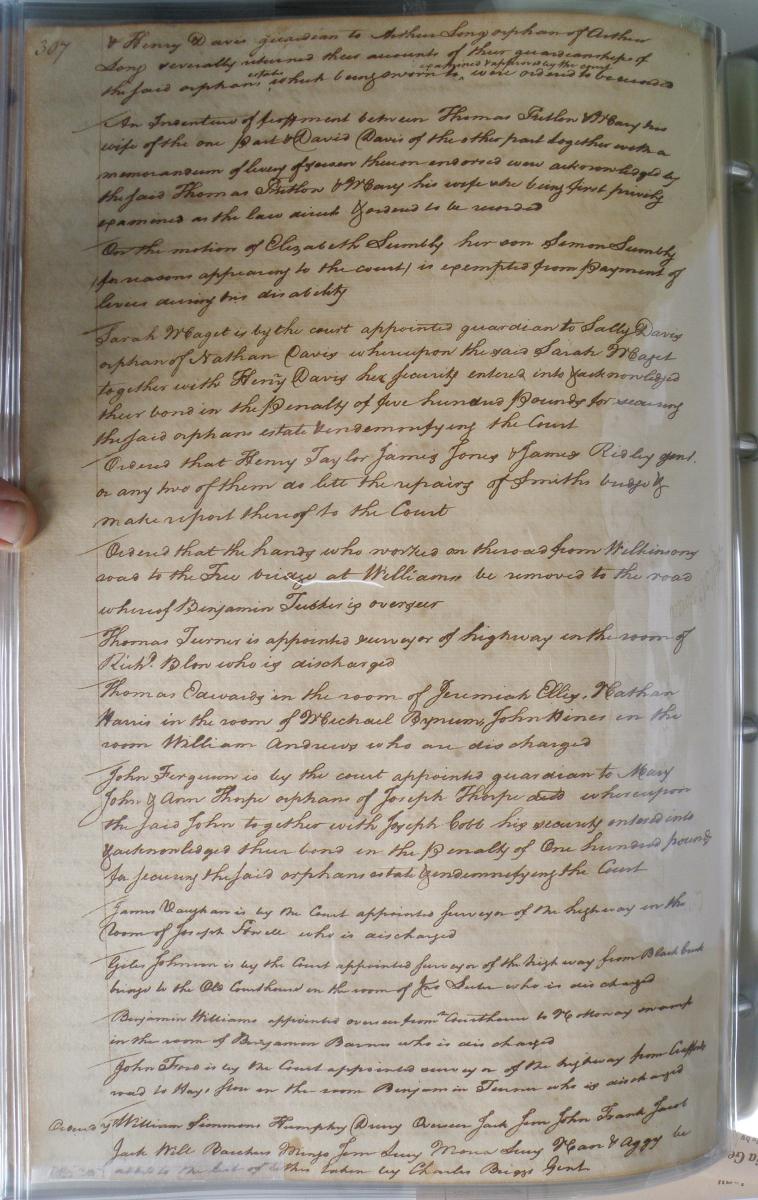 307
& Henry Davis guardian to Arthur Long orphan of Arthur
Long severally returned their accounts of their guardianships of
examined & approved by the court
the said orphans estate which being sworn to, were ordered to be recorded
An Indenture of feoffment between Thomas Fretlon & Mary his
wife of the one part & David Davis of the other part together with a
memorandum of livery of seisen thereon endorsed were acknowledged by
the said Thomas Fretlon & Mary his wife she being first privily
examined as the law directs & ordered to be recorded
On the motion of Elizabeth Sumbly her son Simon Sumbly
(for reasons appearing to the court) is exempted from payment of
levies during his disability
Sarah McCaget is by the court appointed guardian to Sally Davis
orphan of Nathan Davis whereupon the said Sarah
together with Henry Davis her security entered into & acknowledged
their bond in the Penalty of five hundred Pounds for securing
the said orphans estate & indemnifying the Court
Ordered that Henry Taylor James Jones & James Ridley gent.
or any two of them do lett the repairs of Smiths bridge &
make report thereof to the Court
Ordered that the hands who worked on the road from Wilkinsons
road to the Tree bridge at Williams be removed to the road
whereof Benjamin Tucker is overseer
Thomas Turner is appointed surveyor of highway in the room of
Richd. Blow who is discharged
Thomas Edwards in the room of Jeremiah Ellis, Nathan
Harris in the room of Michael Bynum, John Hines in the
room William Andrews who are discharged
John Ferguson is by the court appointed guardian to Mary
John & Ann Thorpe orphans of Joseph Thorpe decd whereupon
the said John together with Joseph Cobb his security entered into
& acknowledged their bond in the Penalty of One hundred pounds
for securing the said orphans estate & indemnifying the Court
James Vaughan is by the Court appointed Surveyor of the highway in the
Room of Joseph who is discharged
Giles Johnson is by the Court appointed Surveyor of the high way from Black
bridge to the Old Courthouse in the room of Jno who is discharged
Benjamin Williams appointed overseer from Courthouse to Nottoway swamp
in the room of Benjamin Barnes who is discharged
John Ford is by the Court appointed surveyor of the highway from
road to Hays in the room Benjamin Turner who is discharged
Ordered William Simmons Humphry Drury Overseer Jack Jim John Frank Jacob
Jack Will Bacchus Mingo Jim Lucy Mona Lucy & Aggy be
added to the list of taken by Charles Briggs Gent.